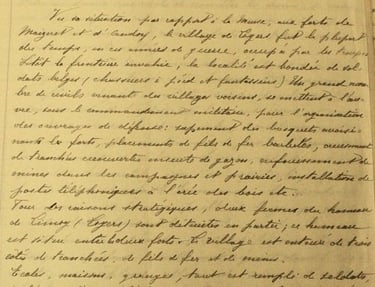 Vu sa situation par rapport à la Meuse, aux forts de
Maizeret et d'Andoy, le village de Vezin fut la plupart
des temps, en ces années de guerre, occupé par les troupes
Sitôt la frontière envahie, la localité est bondée de sol-
dats belges (chasseurs à pied et fantassins) Un grand nom-
bre de civils venant des villages voisins, se mettent à l'œu-
vre, sous le commandement militaire, pour l'organisation
des ouvrages de défense: sapement des bosquets avoisi-
nants les forts, placements de fils de fer barbelés, creusement
de tranchées recouvertes ensuite de gazon, enfouissement de
mines dans les campagnes et prairies, installation de
postes téléphoniques à l'orée des bois etc...
Pour des raisons stratégiques, deux fermes du hameau
de sont détruites en partie; ce hameau
est situé entre les deux forts. Le village est entouré de trois
côtés de tranchées, de fils de fer et de mines.
Ecoles, maisons, granges, tout est rempli de soldats,